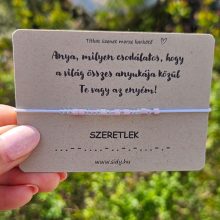 Titkos üzenet morse karkötő
Anya, milyen csodálatos, hogy
a világ összes anyukája közül
Te vagy az enyém!
SZERETLEK
www.sidy.hu